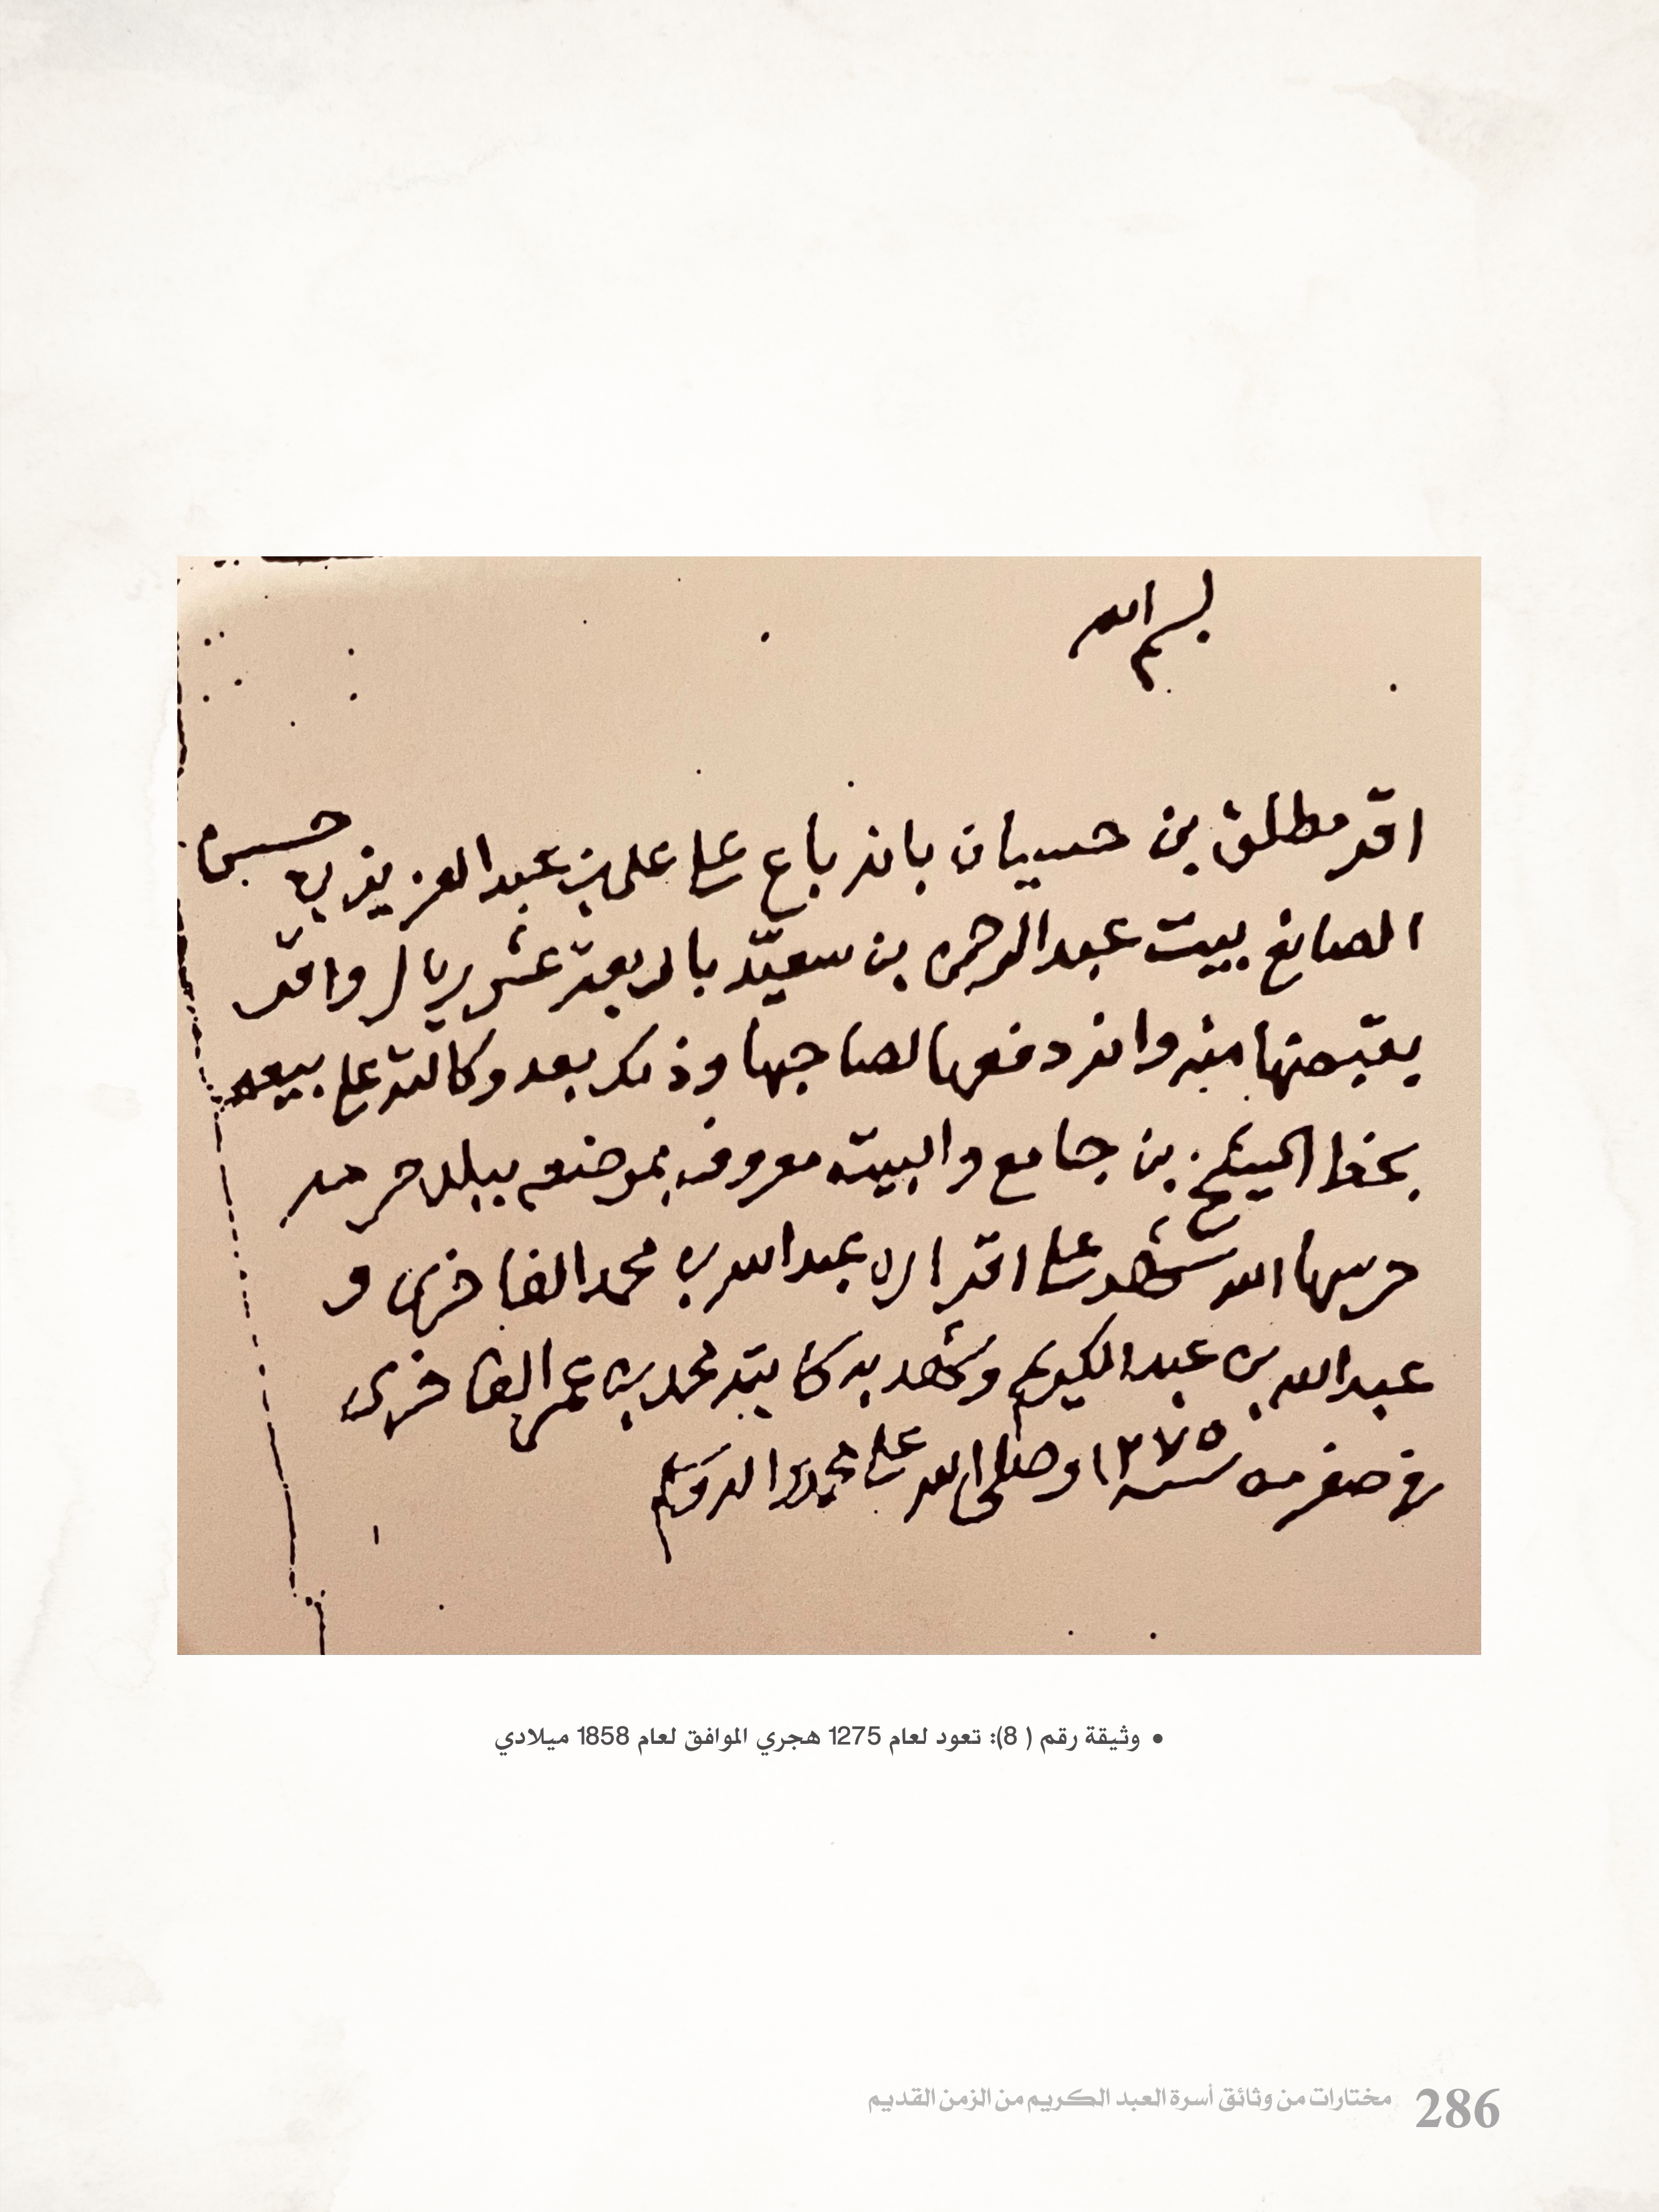 بسم الله
اقر مطلق بن حسيان بانه باع على علي بن عبدالعزيز بن حسين
الصايغ بيت عبدالرحمن بن سعيد باربعة عشر ريال واقر
بقبضها منه وانه دفعها لصاحبها وذلك بعد وكالته على بيعه
بخط الشيخ بن جامع والبيت معروف بموضعه ببلد حرمه
حرسها الله شهد على اقراره عبدالله بن محمد الفاخري و
عبدالله بن عبدالكريم وشهد به كاتبه محمد بن عمر الفاخري
في صفر من سنة ١٢٧٥ وصلى الله على محمد واله وسلم
• وثيقة رقم ( 8): تعود لعام 1275 هجري الموافق لعام 1858 ميلادي
286 مختارات من وثائق أسرة العبد الكريم من الزمن القديم